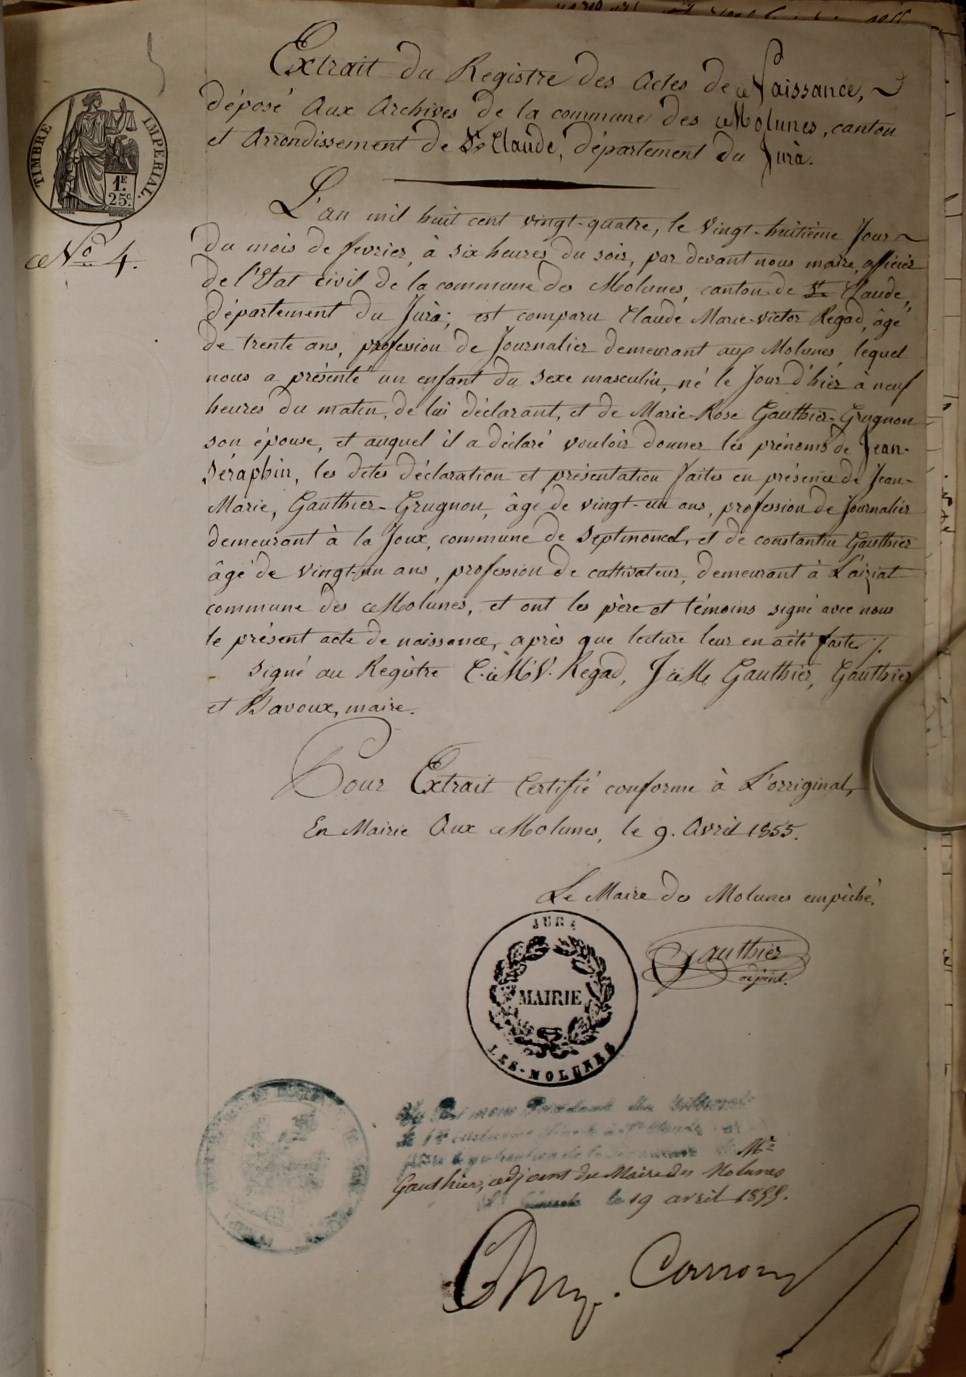 Extrait du Registre des actes de Naissance,
déposé aux archives de la commune des Molunes, canton
et arrondissement de St. Claude, département du Jura.
TIMBRE IMPERIAL.
1F.
25c.
No. 4.
L'an mil huit cent vingt-quatre, le vingt-huitième jour
du mois de fevrier, à six heures du soir, par devant nous maire, officier
de l'Etat civil de la commune des Molunes, canton de St. Claude,
département du Jura; est comparu Claude Marie-Victor Regad, âgé
de trente ans, profession de Journalier demeurant aux Molunes, lequel
nous a présenté un enfant du sexe masculin, né le jour d'hier à neuf
heures du matin, de lui déclarant, et de Marie-Rose Gauthier-Grugnon
son épouse, et auquel il a déclaré vouloir donner les prénoms de Jean-
Séraphin, les dites déclaration et présentation faites en présence de Jean-
Marie, Gauthier-Grugnon, âgé de vingt-un ans, profession de Journalier
demeurant à la Joux, commune de Septmoncel, et de constantin Gauthier
âgé de vingt-un ans, profession de cultivateur, demeurant à L'aiziat
commune des Molunes, et ont les père et témoins signé avec nous
le présent acte de naissance, après que lecture leur en a été faite ./.
Signé au Registre C. M. V. Regad, J M Gauthier, Gauthier
et Bavoux, maire.
Pour Extrait certifié conforme à L'orriginal,
En Mairie Aux Molunes, le 9. Avril 1855.
Le Maire des Molunes empêché,
Gauthier
adjoint.
JURA
MAIRIE
LES-MOLUNES
Mr
Gauthier, adjoint du Maire des Molunes
St Claude le 19 avril 1855.